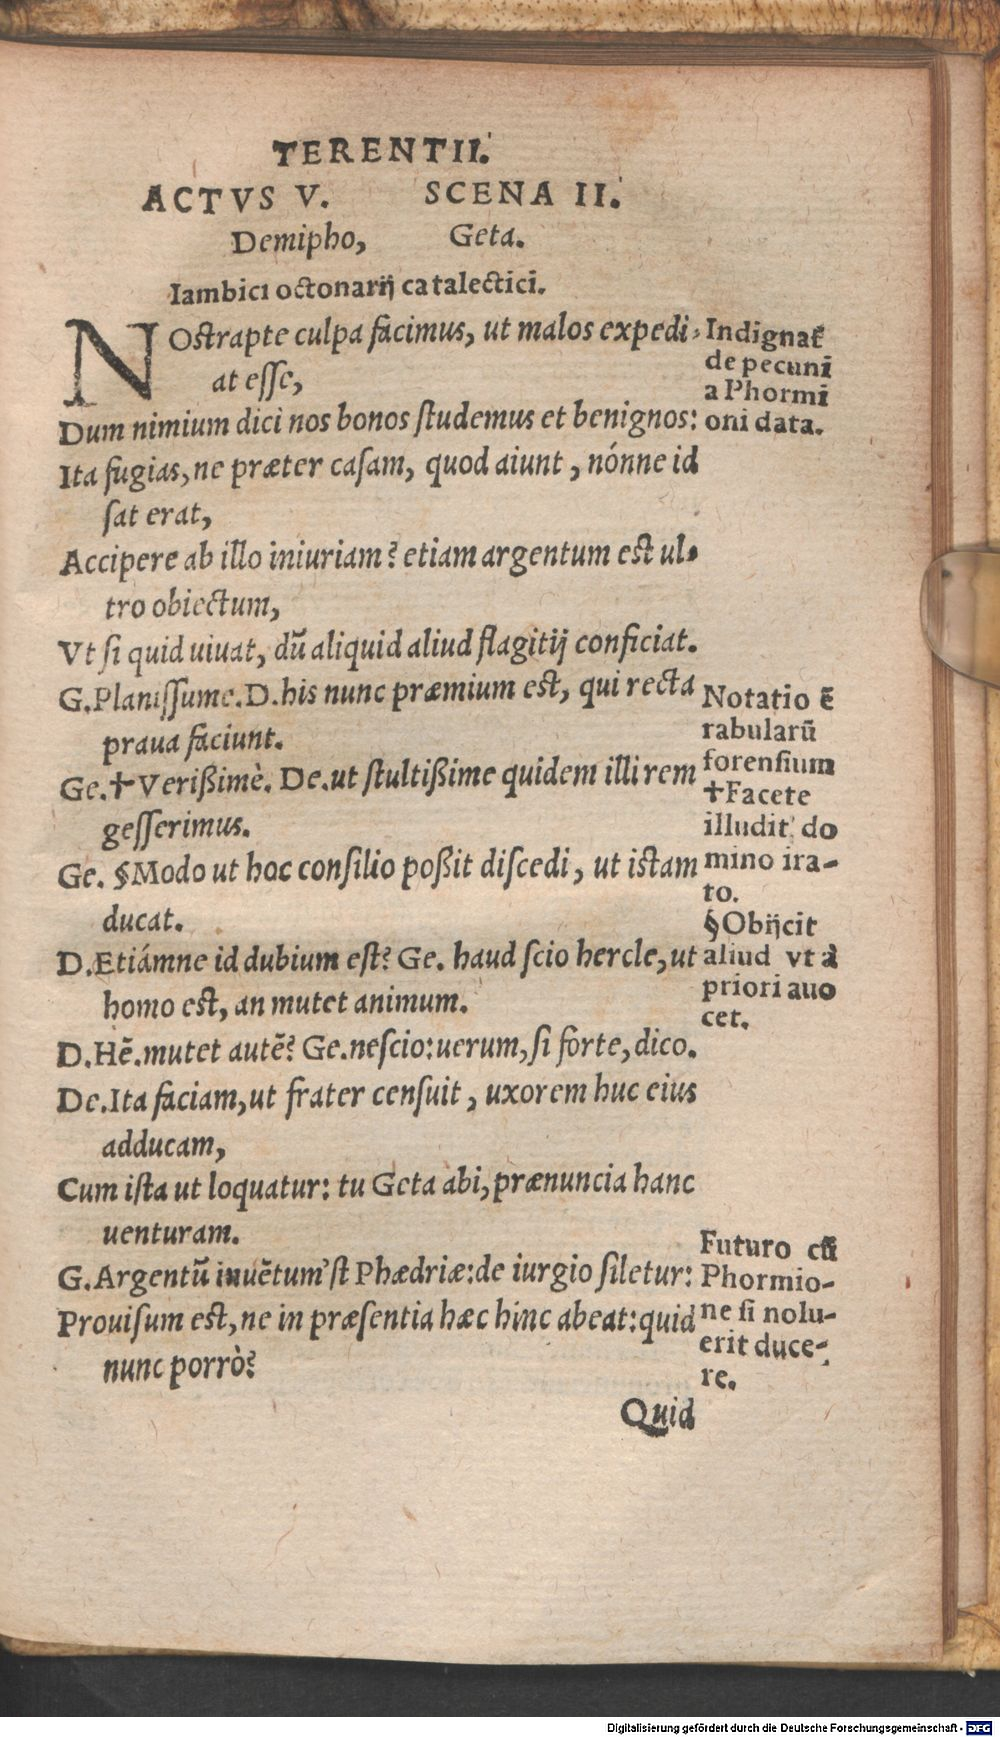 TERENTII.
ACTVS V. SCENA II.
Demipho, Geta.
Iambici octonarij catalectici.
NOstrapte culpa facimus, ut malos expedi-
at esse,
Dum nimium dici nos bonos studemus et benignos:
Ita fugias, ne præter casam, quod aiunt, nónne id
sat erat,
Accipere ab illo iniuriam? etiam argentum est ul-
tro obiectum,
Vt si quid uiuat, dū aliquid aliud flagitij conficiat.
G. Planissume. D. his nunc præmium est, qui recta
praua faciunt.
Ge. ✝Verißimè. De. ut stultißime quidem illi rem
gesserimus.
Ge. §Modo ut hoc consilio poßit discedi, ut istam
ducat.
D. Etiámne id dubium est? Ge. haud scio hercle, ut
homo est, an mutet animum.
D. Hē. mutet autē? Ge. nescio: uerum, si forte, dico.
De. Ita faciam, ut frater censuit, uxorem huc eius
adducam,
Cum ista ut loquatur: tu Geta abi, prænuncia hanc
uenturam.
G. Argentū inuētum'st Phædriæ: de iurgio siletur:
Prouisum est, ne in præsentia hæc hinc abeat: quid
nunc porrò?
Quid
Indignat̄
de pecuni
a Phormi
oni data.
Notatio ē
rabularū
forensium
✝Facete
illudit do
mino ira-
to.
§Obijcit
aliud vt à
priori auo
cet.
Futuro cū
Phormio-
ne si nolu-
erit duce-
re.
Digitalisierung gefördert durch die Deutsche Forschungsgemeinschaft - DFG